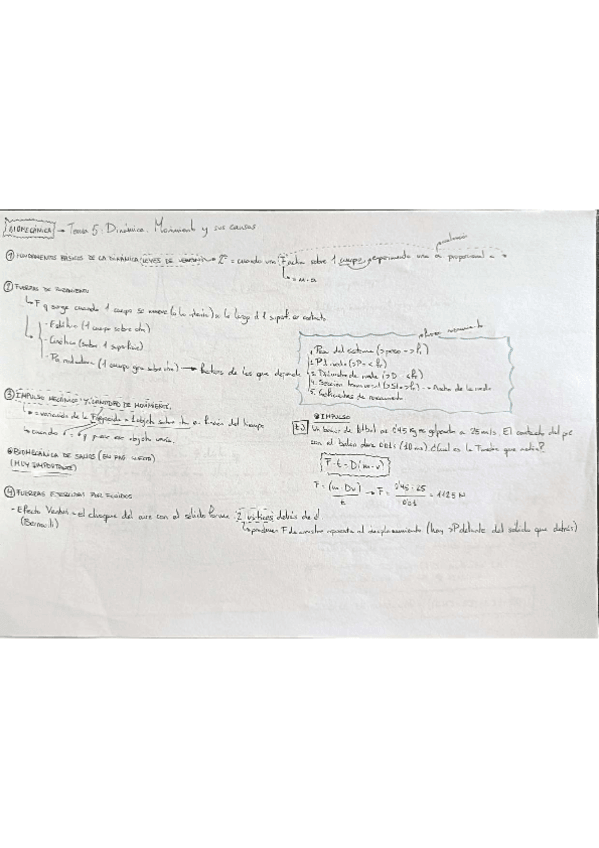 BIOMECÁNICA → Tema 5: Dinámica. Movimiento y sus causas
aceleración
① FUNDAMENTOS BÁSICOS DE LA DINÁMICA (LEYES DE NEWTON) → 2ª = cuando una F actúa sobre 1 cuerpo, experimenta una a proporcional a
= m · a
② FUERZAS DE ROZAMIENTO
F q surge cuando 1 cuerpo se mueve (o lo intenta) a lo largo d 1 superf. en contacto
- Estático (1 cuerpo sobre otro)
- Cinético (sobre 1 superficie)
- Rodadura (1 cuerpo gira sobre otro) → factores de los que depende
1. Peso del sistema (>peso = >Fr)
2. P. rueda (>P = <Fr)
3. Diámetro de rueda (>D = <Fr)
4. Sección transversal
5. Coeficientes de rozamiento
③ IMPULSO MECÁNICO Y CANTIDAD DE MOVIMIENTO.
= variación de la F ejercida x 1 objeto sobre otro en función del tiempo
cuando para ese objeto varía.
BIOMECÁNICA DE SALTOS
(MUY IMPORTANTE)
IMPULSO
Ej) Un balón de fútbol de 0'45 Kg es golpeado a 25 m/s. El contacto del pie
con el balón dura 0'01s (10 ms) ¿Cual es la fuerza que recibe?
F · t = D(m · v)
F = (m · Dv) / t → F = 0'45 · 25 / 0'01 = 1125 N
④ FUERZAS EJERCIDAS POR FLUIDOS
- Efecto Venturi = el choque del aire con el sólido forman 2 vórtices detrás de él
(Bernoulli)
producen F de arrastre opuesta al desplazamiento (hay >P delante del sólido que detrás)